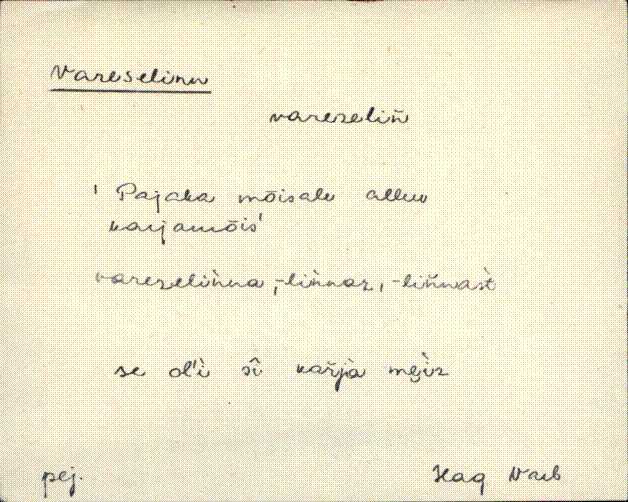 Vareselinn
varezeliǹ
' Pajaka mõisale alluv
karjamõis'
varezeliǹna, -liǹnaz, -liǹnašt
se ol'ì sî kařjà mẹ̀iz
pej. Hag Varb